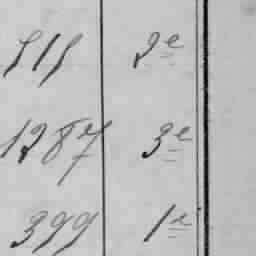 515 2e
1287 3e
399 1e